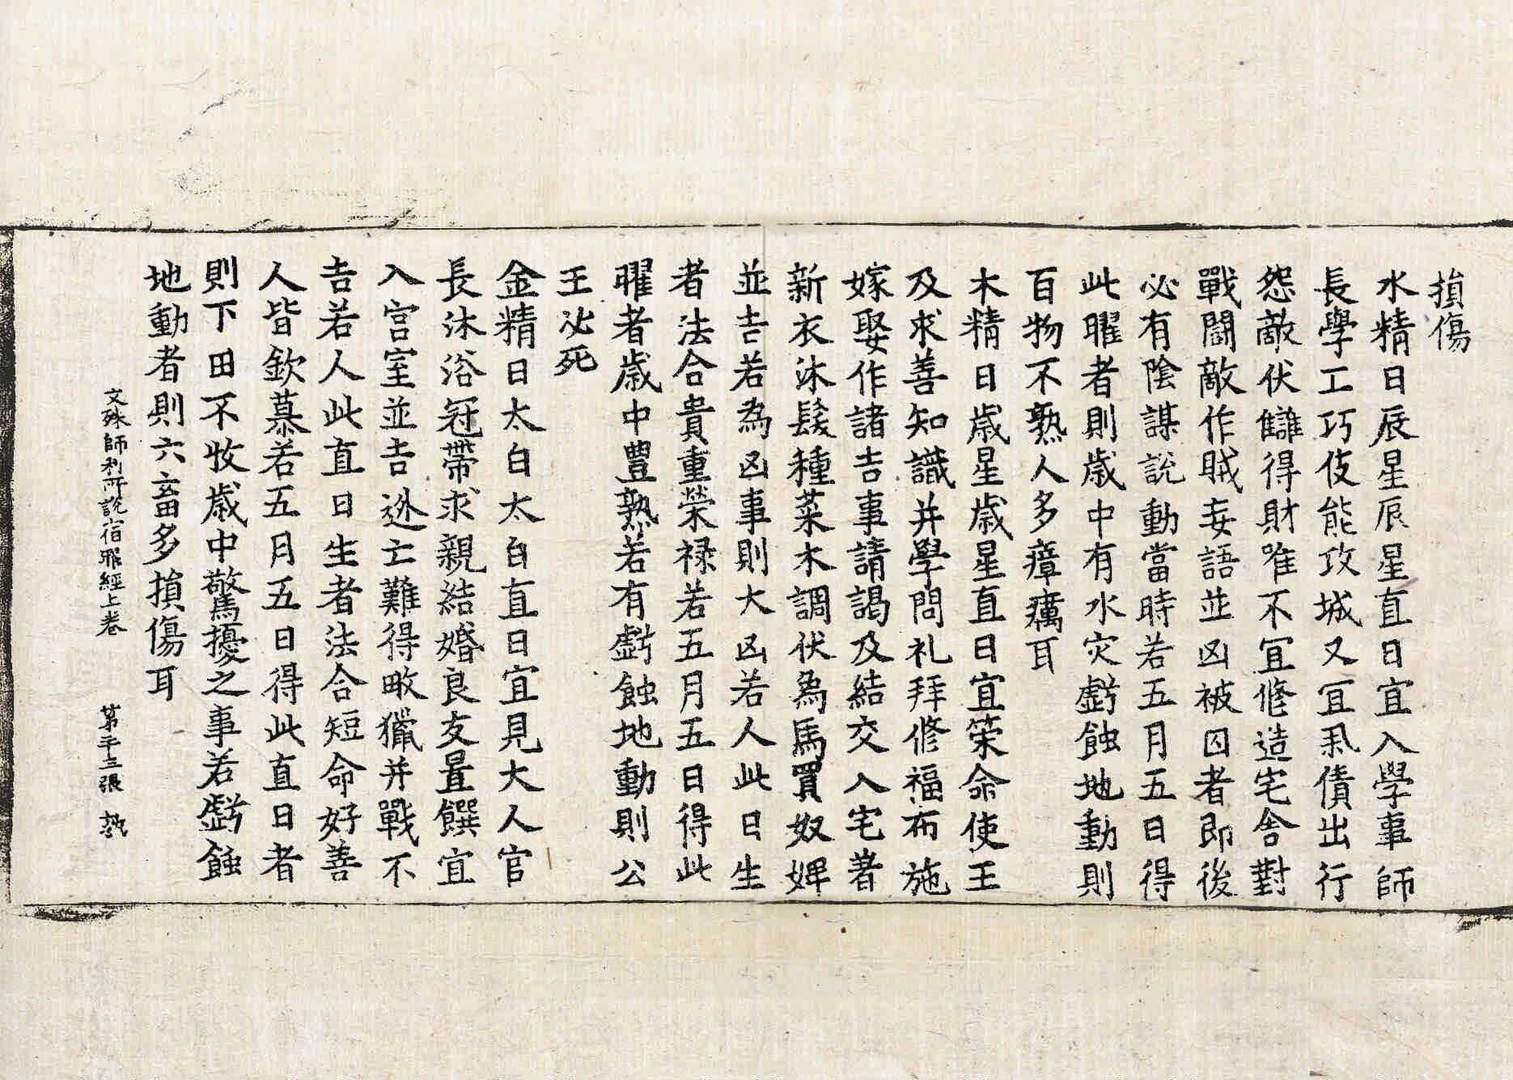 損傷
水精日辰星辰星直日宜入學事師
長學工巧伎能攻城又宜㒺債出行
怨敵伏讎得財唯不宜修造宅舍對
戰鬪敵作賊妄語並凶被囚者即後
必有陰謀說動當時若五月五日得
此曜者則歲中有水灾虧蝕地動則
百物不熟人多瘴癘耳
木精日歲星歲星直日宜策命使王
及求善知識并學問礼拜修福布施
嫁娶作諸吉事請謁及結交入宅著
新衣沐髮種菜木調伏爲馬買奴婢
並吉若為凶事則大凶若人此日生
者法合貴重榮祿若五月五日得此
曜者歲中豊熟若有虧蝕地動則公
王必死
金精日太白太白直日宜見大人官
長沐浴冠帶求親結婚良友置饌宜
入宮室並吉迯亡難得畋獵并戰不
吉若人此直日生者法合短命好善
人皆欽慕若五月五日得此直日者
則下田不收歲中驚擾之事若虧蝕
地動者則六畜多損傷耳
文殊師利所說宿曜經上卷 第二十三張 𭓇